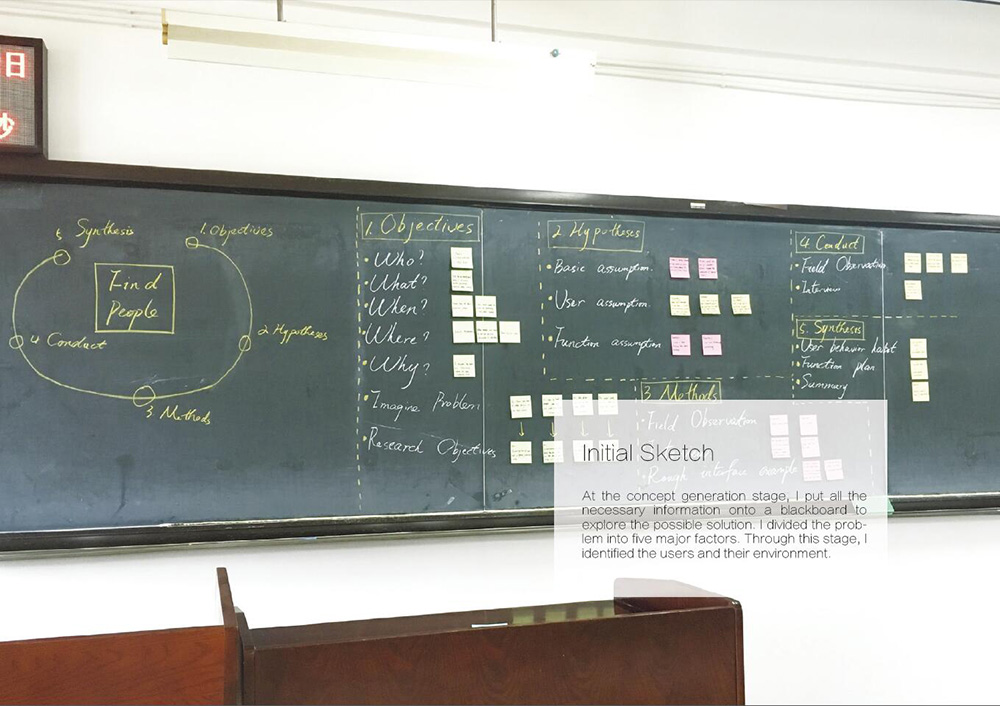 日
秒
5 Synthesis
1. Objectives
Find
People
4 Conduct
2 Hypotheses
3 Methods
1. Objectives
• Who?
• What?
• When?
• Where?
• Why?
• Imagine Problem
• Research Objectives
2. Hypotheses
• Basic assumption.
• User assumption.
• Function assumption
3 Methods
• Field Observation
• Rough interface example
4 Conduct
• Field Observation
• Interview
5. Synthesis
• User behavior
• Function plan
• Summary
Initial Sketch
At the concept generation stage, I put all the
necessary information onto a blackboard to
explore the possible solution. I divided the prob-
lem into five major factors. Through this stage, I
identified the users and their environment.